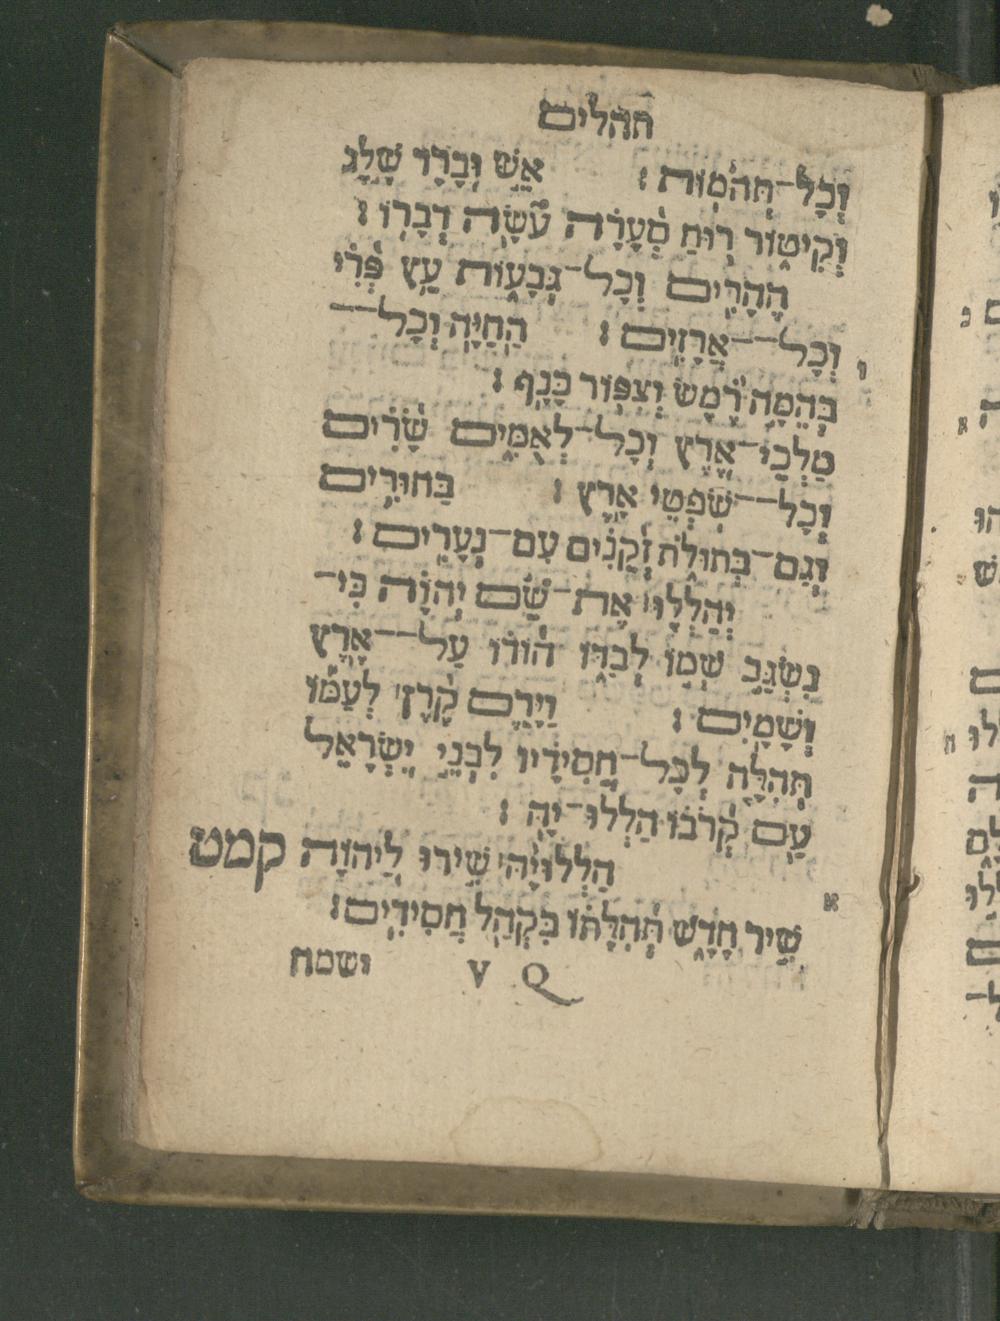 תהלים
וְכָל־תְּהֹמוֹת׃ אֵשׁ וּבָרָד שֶׁלֶג
וְקִיטוֹר רוּחַ סְעָרָה עֹשָׂה דְבָרוֹ׃
הֶהָרִים וְכָל־גְּבָעוֹת עֵץ פְּרִי
וְכָל־־אֲרָזִים׃ הַחַיָּה וְכָל־־
בְּהֵמָה רֶמֶשׂ וְצִפּוֹר כָּנָף׃
מַלְכֵי־אֶרֶץ וְכָל־לְאֻמִּים שָׂרִים
וְכָל־־שֹׁפְטֵי אָרֶץ׃ בַּחוּרִים
וְגַם־בְּתוּלֹת זְקֵנִים עִם־נְעָרִים׃
יְהַלְלוּ אֶת־שֵׁם יְהוָה כִּי־
נִשְׂגָּב שְׁמוֹ לְבַדּוֹ הוֹדוֹ עַל־־אֶרֶץ
וְשָׁמָיִם׃ וַיָּרֶם קֶרֶן לְעַמּוֹ
תְּהִלָּה לְכָל־חֲסִידָיו לִבְנֵי יִשְׂרָאֵל
עַם קְרֹבוֹ הַלְלוּ־יָהּ׃
הַלְלוּיָהּ שִׁירוּ לַיהוָה קמט
שִׁיר חָדָשׁ תְּהִלָּתוֹ בִּקְהַל חֲסִידִים׃
V Q ושמח